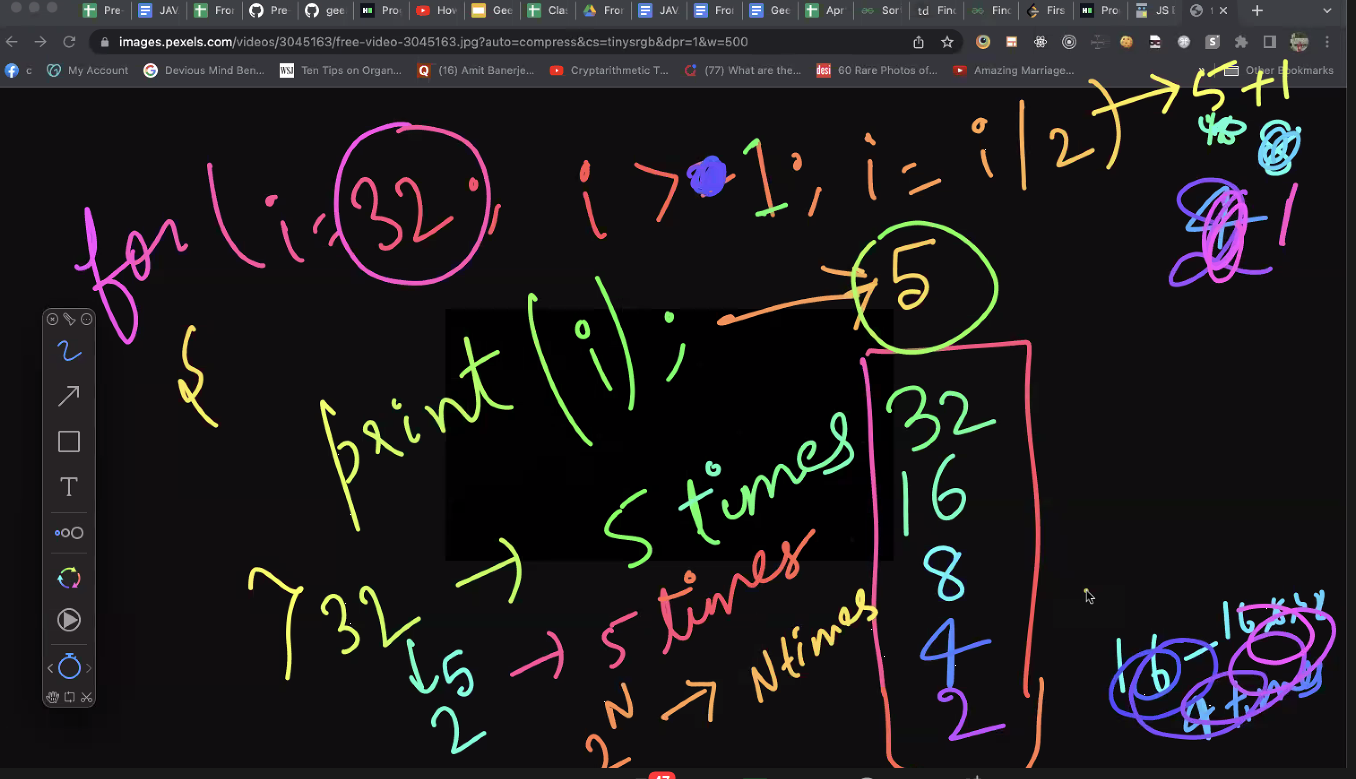 Pre- JAV Fror Pre- gee How Gee Clas Fror JAV Fror Gee Apr Sor td Find Find Firs Pro JS D
images.pexels.com/videos/3045163/free-video-3045163.jpg?auto=compress&cs=tinysrgb&dpr=1&w=500
c My Account Devious Mind Ben... WSJ Ten Tips on Organ... (16) Amit Banerje... Cryptarithmetic T... (77) What are the... desi 60 Rare Photos of... Amazing Marriage... » Other Bookmarks
for (i = 32; i > 1; i = i/2) → 5+1
1
{
print(i); → 5
32
16
8
4
2
T
32 → 5 times
2 5 → 5 times
2 N → N times
16 -
4 times
17